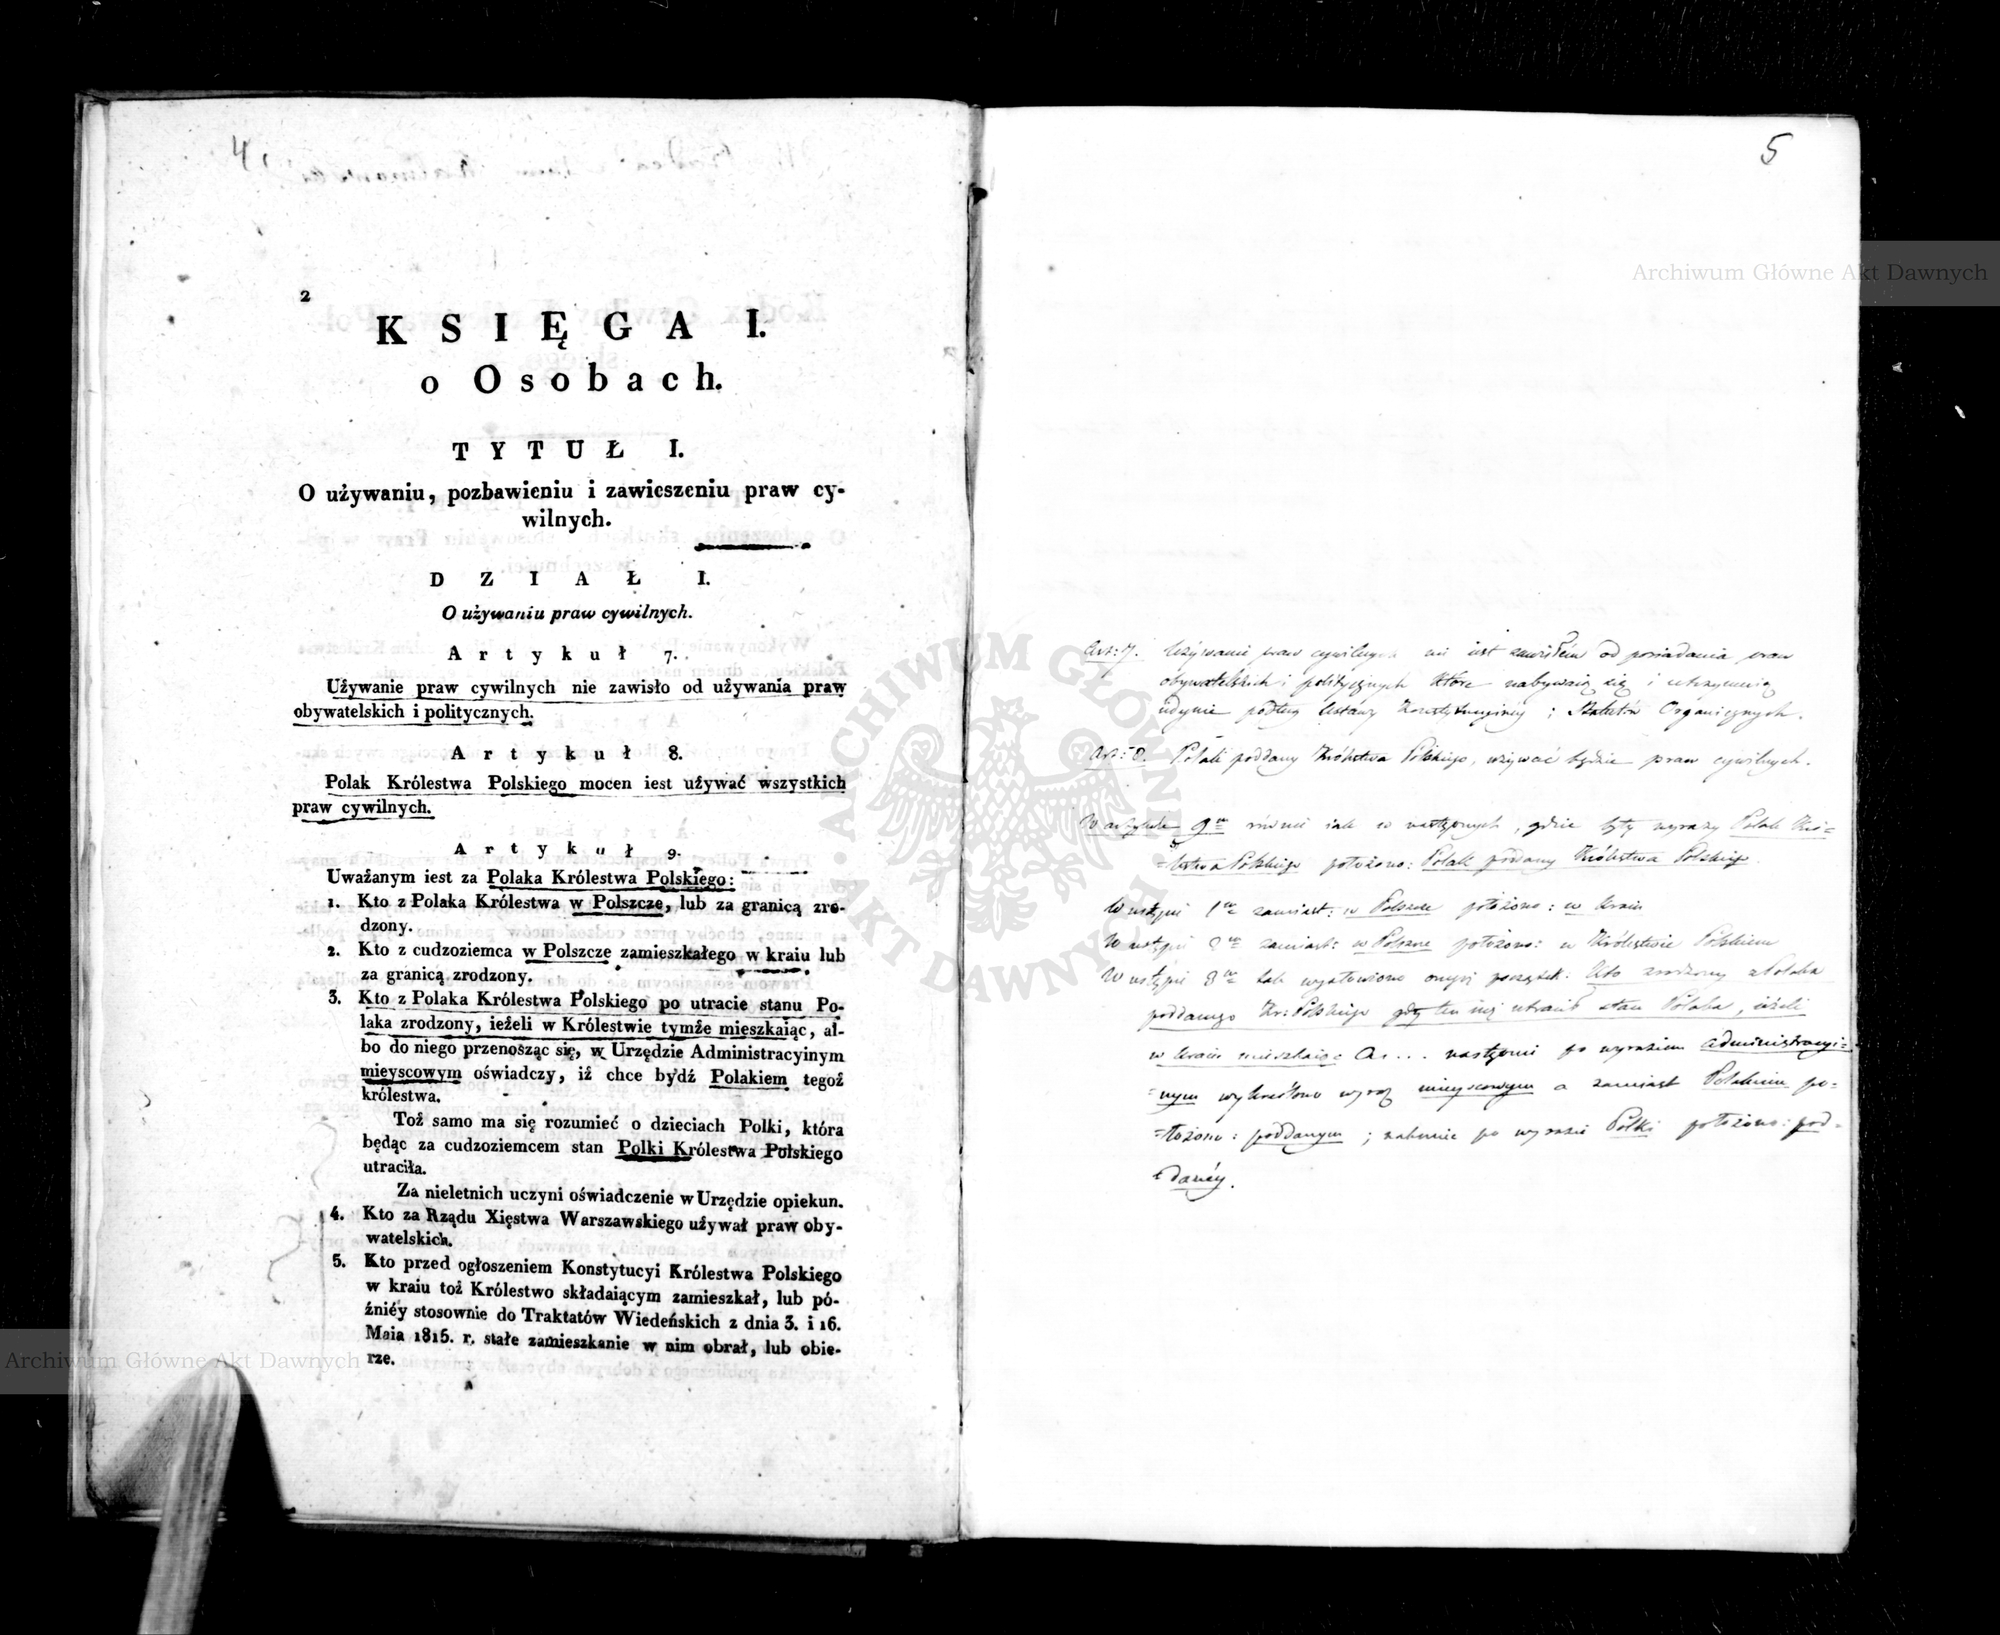 4
2
KSIĘGA I.
o Osobach.
TYTUŁ I.
O używaniu, pozbawieniu i zawieszeniu praw cy-
wilnych.
DZIAŁ I.
O używaniu praw cywilnych.
Artykuł 7.
Używanie praw cywilnych nie zawisło od używania praw
obywatelskich i politycznych.
Artykuł 8.
Polak Królestwa Polskiego mocen iest używać wszystkich
praw cywilnych.
Artykuł 9.
Uważanym iest za Polaka Królestwa Polskiego:
1. Kto z Polaka Królestwa w Polszcze, lub za granicą zro-
dzony.
2. Kto z cudzoziemca w Polszcze zamieszkałego w kraiu lub
za granicą zrodzony.
3. Kto z Polaka Królestwa Polskiego po utracie stanu Po-
laka zrodzony, ieżeli w Królestwie tymże mieszkaiąc, al-
bo do niego przenosząc się, w Urzędzie Administracyinym
mieyscowym oświadczy, iż chce bydź Polakiem tegoż
królestwa.
Toż samo ma się rozumieć o dzieciach Polki, która
będąc za cudzoziemcem stan Polki Królestwa Polskiego
utraciła.
Za nieletnich uczyni oświadczenie w Urzędzie opiekun.
4. Kto za Rządu Xięstwa Warszawskiego używał praw oby-
watelskich.
5. Kto przed ogłoszeniem Konstytucyi Królestwa Polskiego
w kraiu toż Królestwo składaiącym zamieszkał, lub pó-
źniéy stosownie do Traktatów Wiedeńskich z dnia 3. i 16.
Maia 1815. r. stałe zamieszkanie w nim obrał, lub obie-
rze.
5
Art: 7. Używanie praw cywilnych nie iest zawisłém od posiadania praw
obywatelskich i politycznych które nabywaią się i utrzymuią
iedynie podług Ustawy Konstytucyinéy i Statutów Organicznych.
Art: 8. Polak poddany Królestwa Polskiego, używać będzie praw cywilnych.
W artykule 9m równie iak w następnych, gdzie były wyrazy Polak Kró=
=lestwa Polskiego położono: Polak poddany Królestwa Polskiego.
W ustępie 1m zamiast: w Polszcze położono: w kraiu
W ustępie 2m zamiast: w Polszcze położono: w Królestwie Polskiem
W ustępie 3m tak wygotowiono początek: Kto zrodzony z Polaka
poddanego Kr: Polskiego gdy ten iuż utracił stan Polaka, ieżeli
w kraiu mieszkaiąc &c... następnie po wyrazie administracyi=
=nym wykreślono wyraz mieyscowym a zamiast Polakiem po=
=łożono: poddanym; po wyrazie Polki położono: pod=
=danéy.
Archiwum Główne Akt Dawnych
Archiwum Główne Akt Dawnych
ARCHIWUM GŁÓWNE AKT DAWNYCH